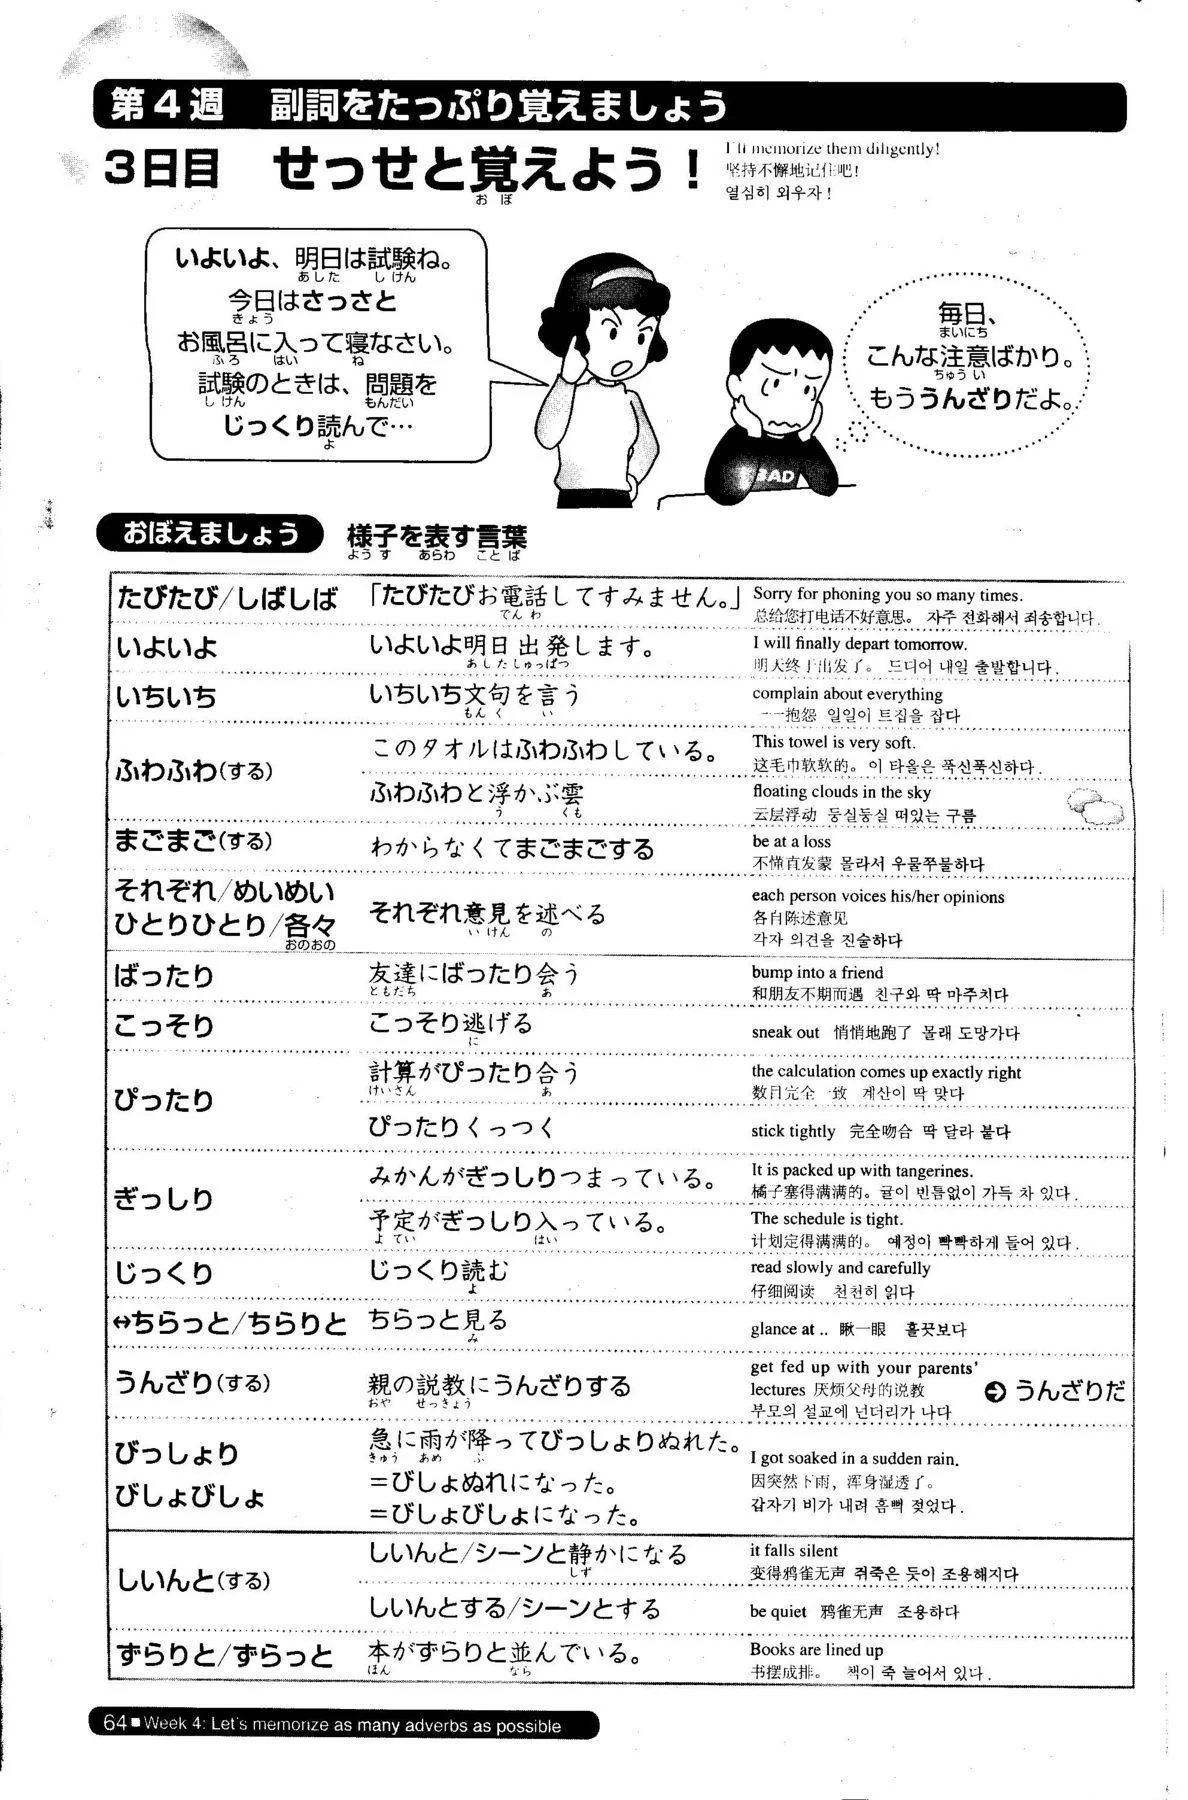 第4週　副詞をたっぷり覚えましょう
3日目　せっせと覚えよう！
おぼ
I'll memorize them diligently!
坚持不懈地记住吧!
열심히 외우자!
いよいよ、明日は試験ね。
あした　しけん
今日はさっさと
きょう
お風呂に入って寝なさい。
ふろ　はい　ね
試験のときは、問題を
しけん　もんだい
じっくり読んで…
よ
毎日、
まいにち
こんな注意ばかり。
ちゅうい
もううんざりだよ。
BAD
おぼえましょう　様子を表す言葉
ようす　あらわ　ことば
たびたび/しばしば
「たびたびお電話してすみません。」
でんわ
Sorry for phoning you so many times.
总给您打电话不好意思。 자주 전화해서 죄송합니다.
いよいよ
いよいよ明日出発します。
あした しゅっぱつ
I will finally depart tomorrow.
明天终于出发了。 드디어 내일 출발합니다.
いちいち
いちいち文句を言う
もんく　い
complain about everything
一一抱怨 일일이 트집을 잡다
ふわふわ(する)
このタオルはふわふわしている。
This towel is very soft.
这毛巾软软的。 이 타올은 푹신푹신하다.
ふわふわと浮かぶ雲
う　くも
floating clouds in the sky
云层浮动 둥실둥실 떠있는 구름
まごまご(する)
わからなくてまごまごする
be at a loss
不懂直发蒙 몰라서 우물쭈물하다
それぞれ/めいめい
ひとりひとり/各々
おのおの
それぞれ意見を述べる
いけん　の
each person voices his/her opinions
各自陈述意见
각자 의견을 진술하다
ばったり
友達にばったり会う
ともだち　あ
bump into a friend
和朋友不期而遇 친구와 딱 마주치다
こっそり
こっそり逃げる
に
sneak out 悄悄地跑了 몰래 도망가다
ぴったり
計算がぴったり合う
けいさん　あ
the calculation comes up exactly right
数目完全一致 계산이 딱 맞다
ぴったりくっつく
stick tightly 完全吻合 딱 달라 붙다
ぎっしり
みかんがぎっしりつまっている。
It is packed up with tangerines.
橘子塞得满满的。귤이 빈틈없이 가득 차 있다.
予定がぎっしり入っている。
よてい　はい
The schedule is tight.
计划定得满满的。 예정이 빡빡하게 들어 있다.
じっくり
じっくり読む
よ
read slowly and carefully
仔细阅读 천천히 읽다
↔ちらっと/ちらりと
ちらっと見る
み
glance at .. 瞅一眼 흘끗보다
うんざり(する)
親の説教にうんざりする
おや　せっきょう
get fed up with your parents'
lectures 厌烦父母的说教
부모의 설교에 넌더리가 나다
➲ うんざりだ
びっしょり
びしょびしょ
急に雨が降ってびっしょりぬれた。
きゅう　あめ　ふ
=びしょぬれになった。
=びしょびしょになった。
I got soaked in a sudden rain.
因突然下雨，浑身湿透了。
갑자기 비가 내려 흠뻑 젖었다.
しいんと(する)
しいんと/シーンと静かになる
しず
it falls silent
变得鸦雀无声 쥐죽은 듯이 조용해지다
しいんとする/シーンとする
be quiet 鸦雀无声 조용하다
ずらりと/ずらっと
本がずらりと並んでいる。
ほん　なら
Books are lined up
书摆成排。 책이 죽 늘어서 있다.
64■Week 4: Let's memorize as many adverbs as possible